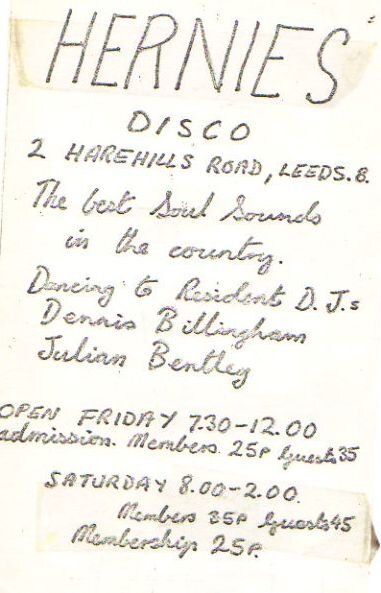 HERNIES
DISCO
2 HAREHILLS ROAD, LEEDS. 8.
The best Soul Sounds
in the country.
Dancing to Resident D.J.s
Dennis Billingham
Julian Bentley
OPEN FRIDAY 7.30-12.00
admission. Members 25P Guests 35
SATURDAY 8.00-2.00.
Members 35P Guests 45
Membership 25P.